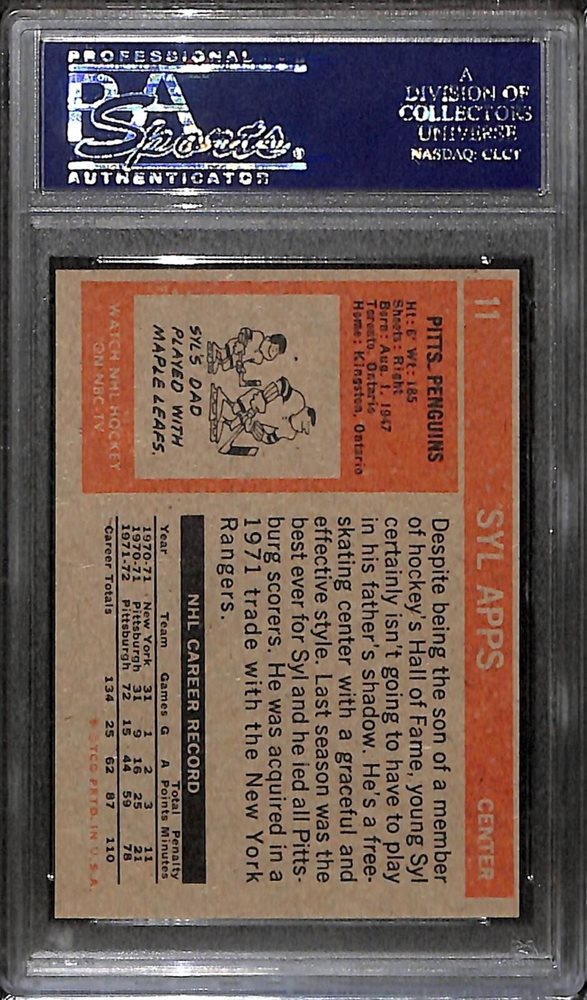 PROFESSIONAL
PSA
Sports®
AUTHENTICATOR
A
DIVISION OF
COLLECTORS
UNIVERSE
NASDAQ: CLCT
11 SYL APPS CENTER
PITTS. PENGUINS
Ht: 6' Wt: 185
Shoots: Right
Born: Aug. 1, 1947
Toronto, Ontario
Home: Kingston, Ontario
SYL'S DAD
PLAYED WITH
MAPLE LEAFS.
WATCH NHL HOCKEY
ON NBC-TV
Despite being the son of a member
of hockey's Hall of Fame, young Syl
certainly isn't going to have to play
in his father's shadow. He's a free-
skating center with a graceful and
effective style. Last season was the
best ever for Syl and he led all Pitts-
burg scorers. He was acquired in a
1971 trade with the New York
Rangers.
NHL CAREER RECORD
Total Penalty
Year Team Games G A Points Minutes
1970-71 New York 31 1 2 3 11
1970-71 Pittsburgh 31 9 16 25 21
1971-72 Pittsburgh 72 15 44 59 78
Career Totals 134 25 62 87 110
© TCG PRTD. IN U.S.A.